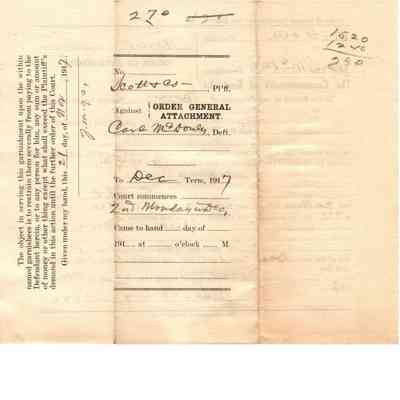 270
1520
1240
No
Scott & Co —, Pl'ff.
Against
ORDER GENERAL
ATTACHMENT.
Carl McDowly, Deft.
To Dec Term, 1917
Court commences
2nd Monday in Dec,
Came to hand day of
191 at o'clock M
The object in serving this garnishment upon the within
named garnishees is to restrain them severally from paying to the
Defendant herein, or to any person for him, any sum or amount
of money or other thing except what shall exceed the Plaintiff's
demand in this action until the further order of this Court.
Given under my hand, this 21 day, of Nov, 1917